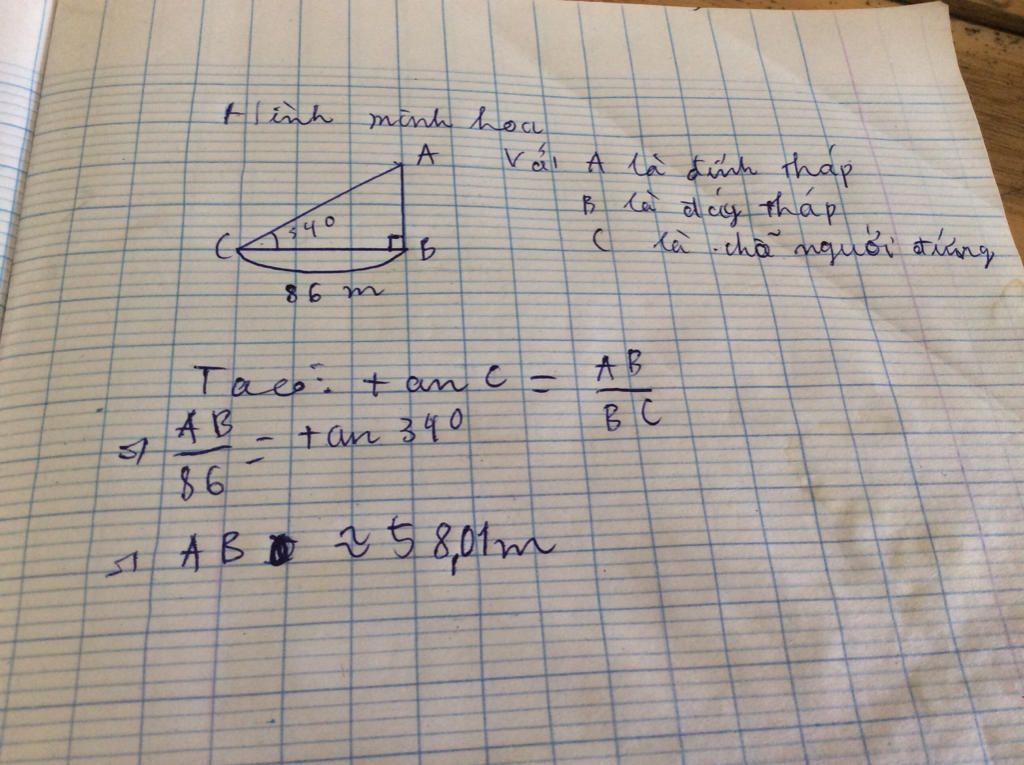 Hình minh họa
A Với A là đỉnh tháp
B là đáy tháp
34°
C B C là chỗ người đứng
86 m
Ta có: tan C = AB/BC
=> AB/86 = tan 34°
=> AB ≈ 58,01m